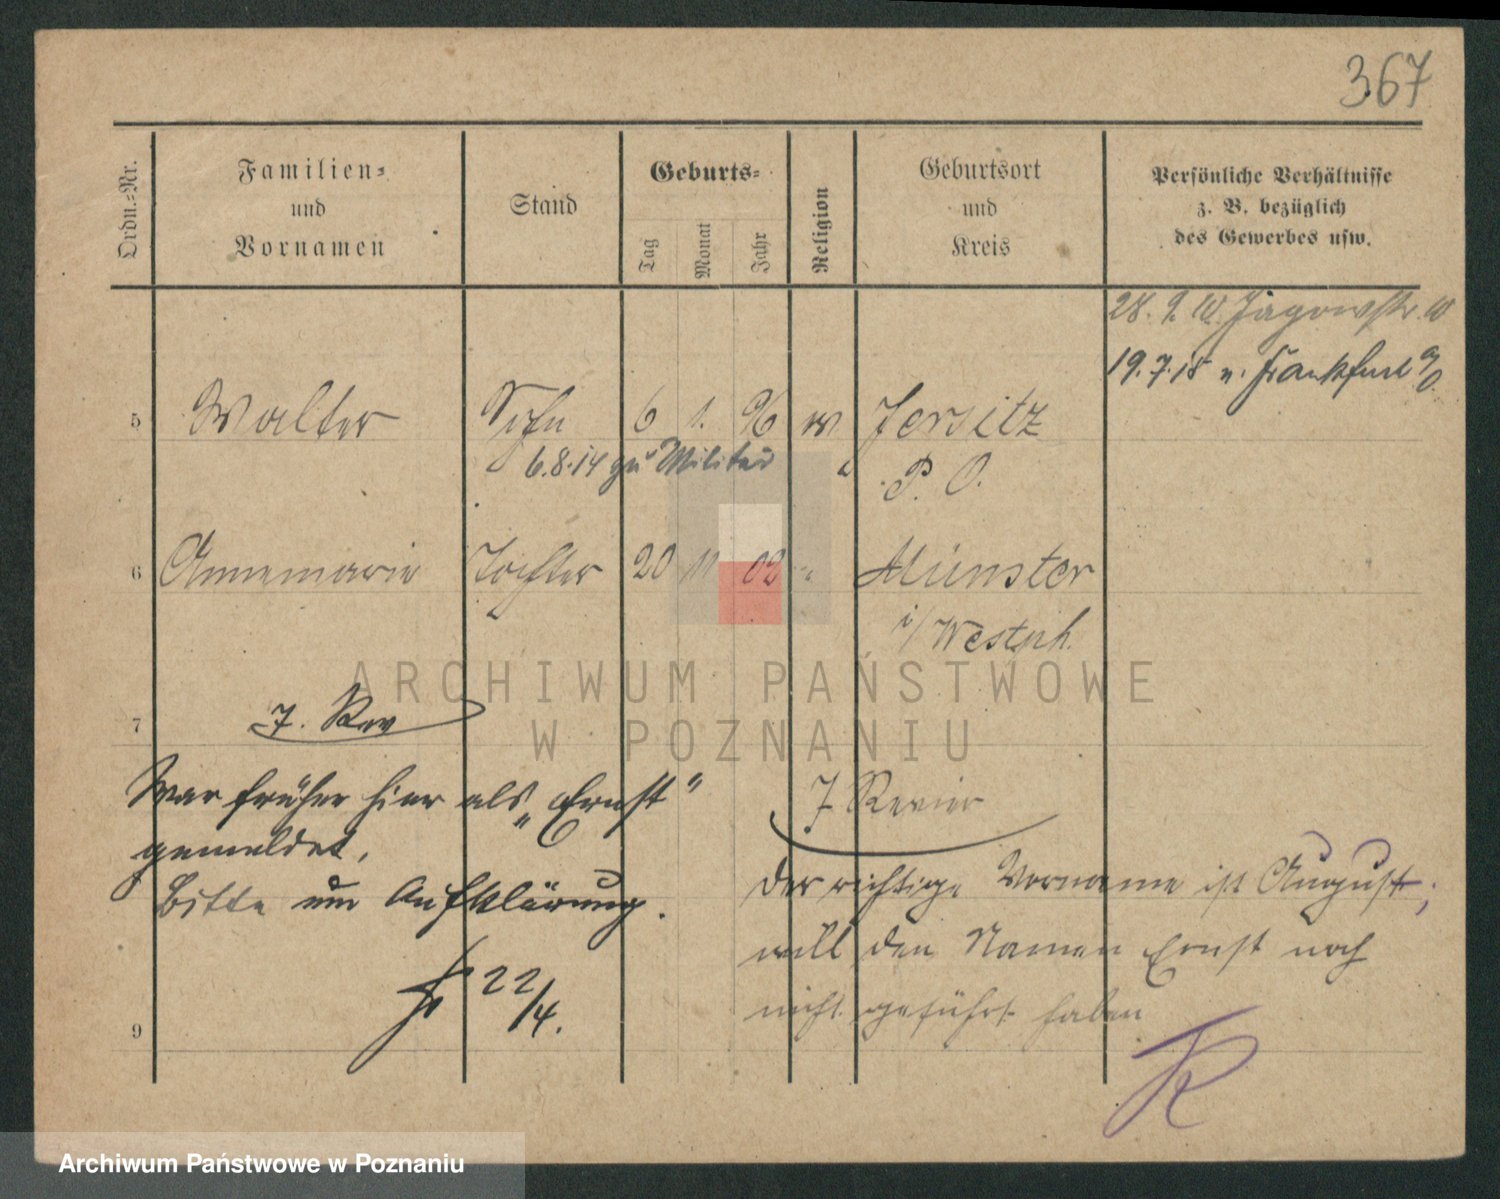 367
Ordn.=Nr.
Familien=
und
Vornamen
Stand
Geburts=
Tag
Monat
Jahr
Religion
Geburtsort
und
Kreis
Persönliche Verhältnisse
z. B. bezüglich
des Gewerbes usw.
28. 9. 10. Jagowstr. 10
19.7.18 n. Frankfurt a/O
5 Walter Sohn 6 1. 96 ev Jersitz
6.8.14 zu Militär P. O.
6 Annemarie Tochter 20 11 02 " Münster
i/Westph.
7 7. Rev
War früher hier als „Ernst"
gemeldet.
Bitte um Aufklärung.
22/4.
7 Revier
Der richtige Vorname ist August;
will den Namen Ernst noch
nicht geführt haben
9
ARCHIWUM PAŃSTWOWE
W POZNANIU
Archiwum Państwowe w Poznaniu